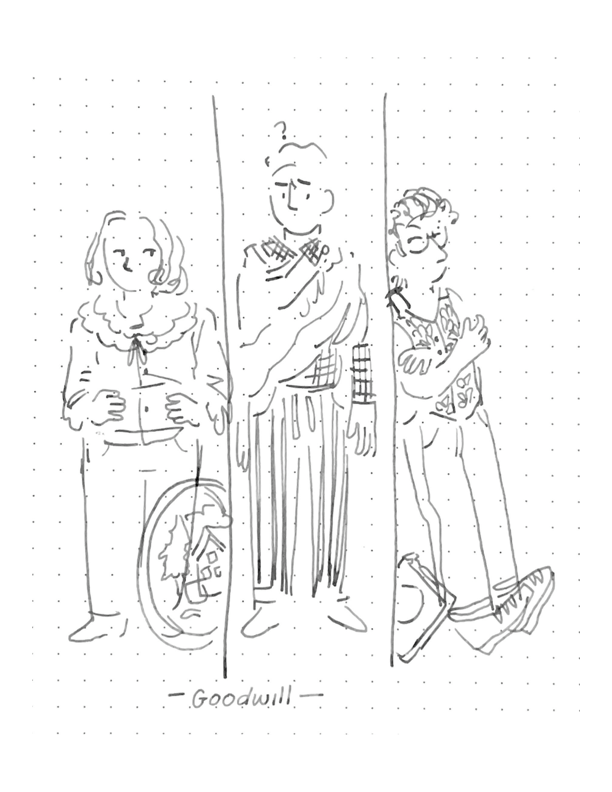 ?
- Goodwill -